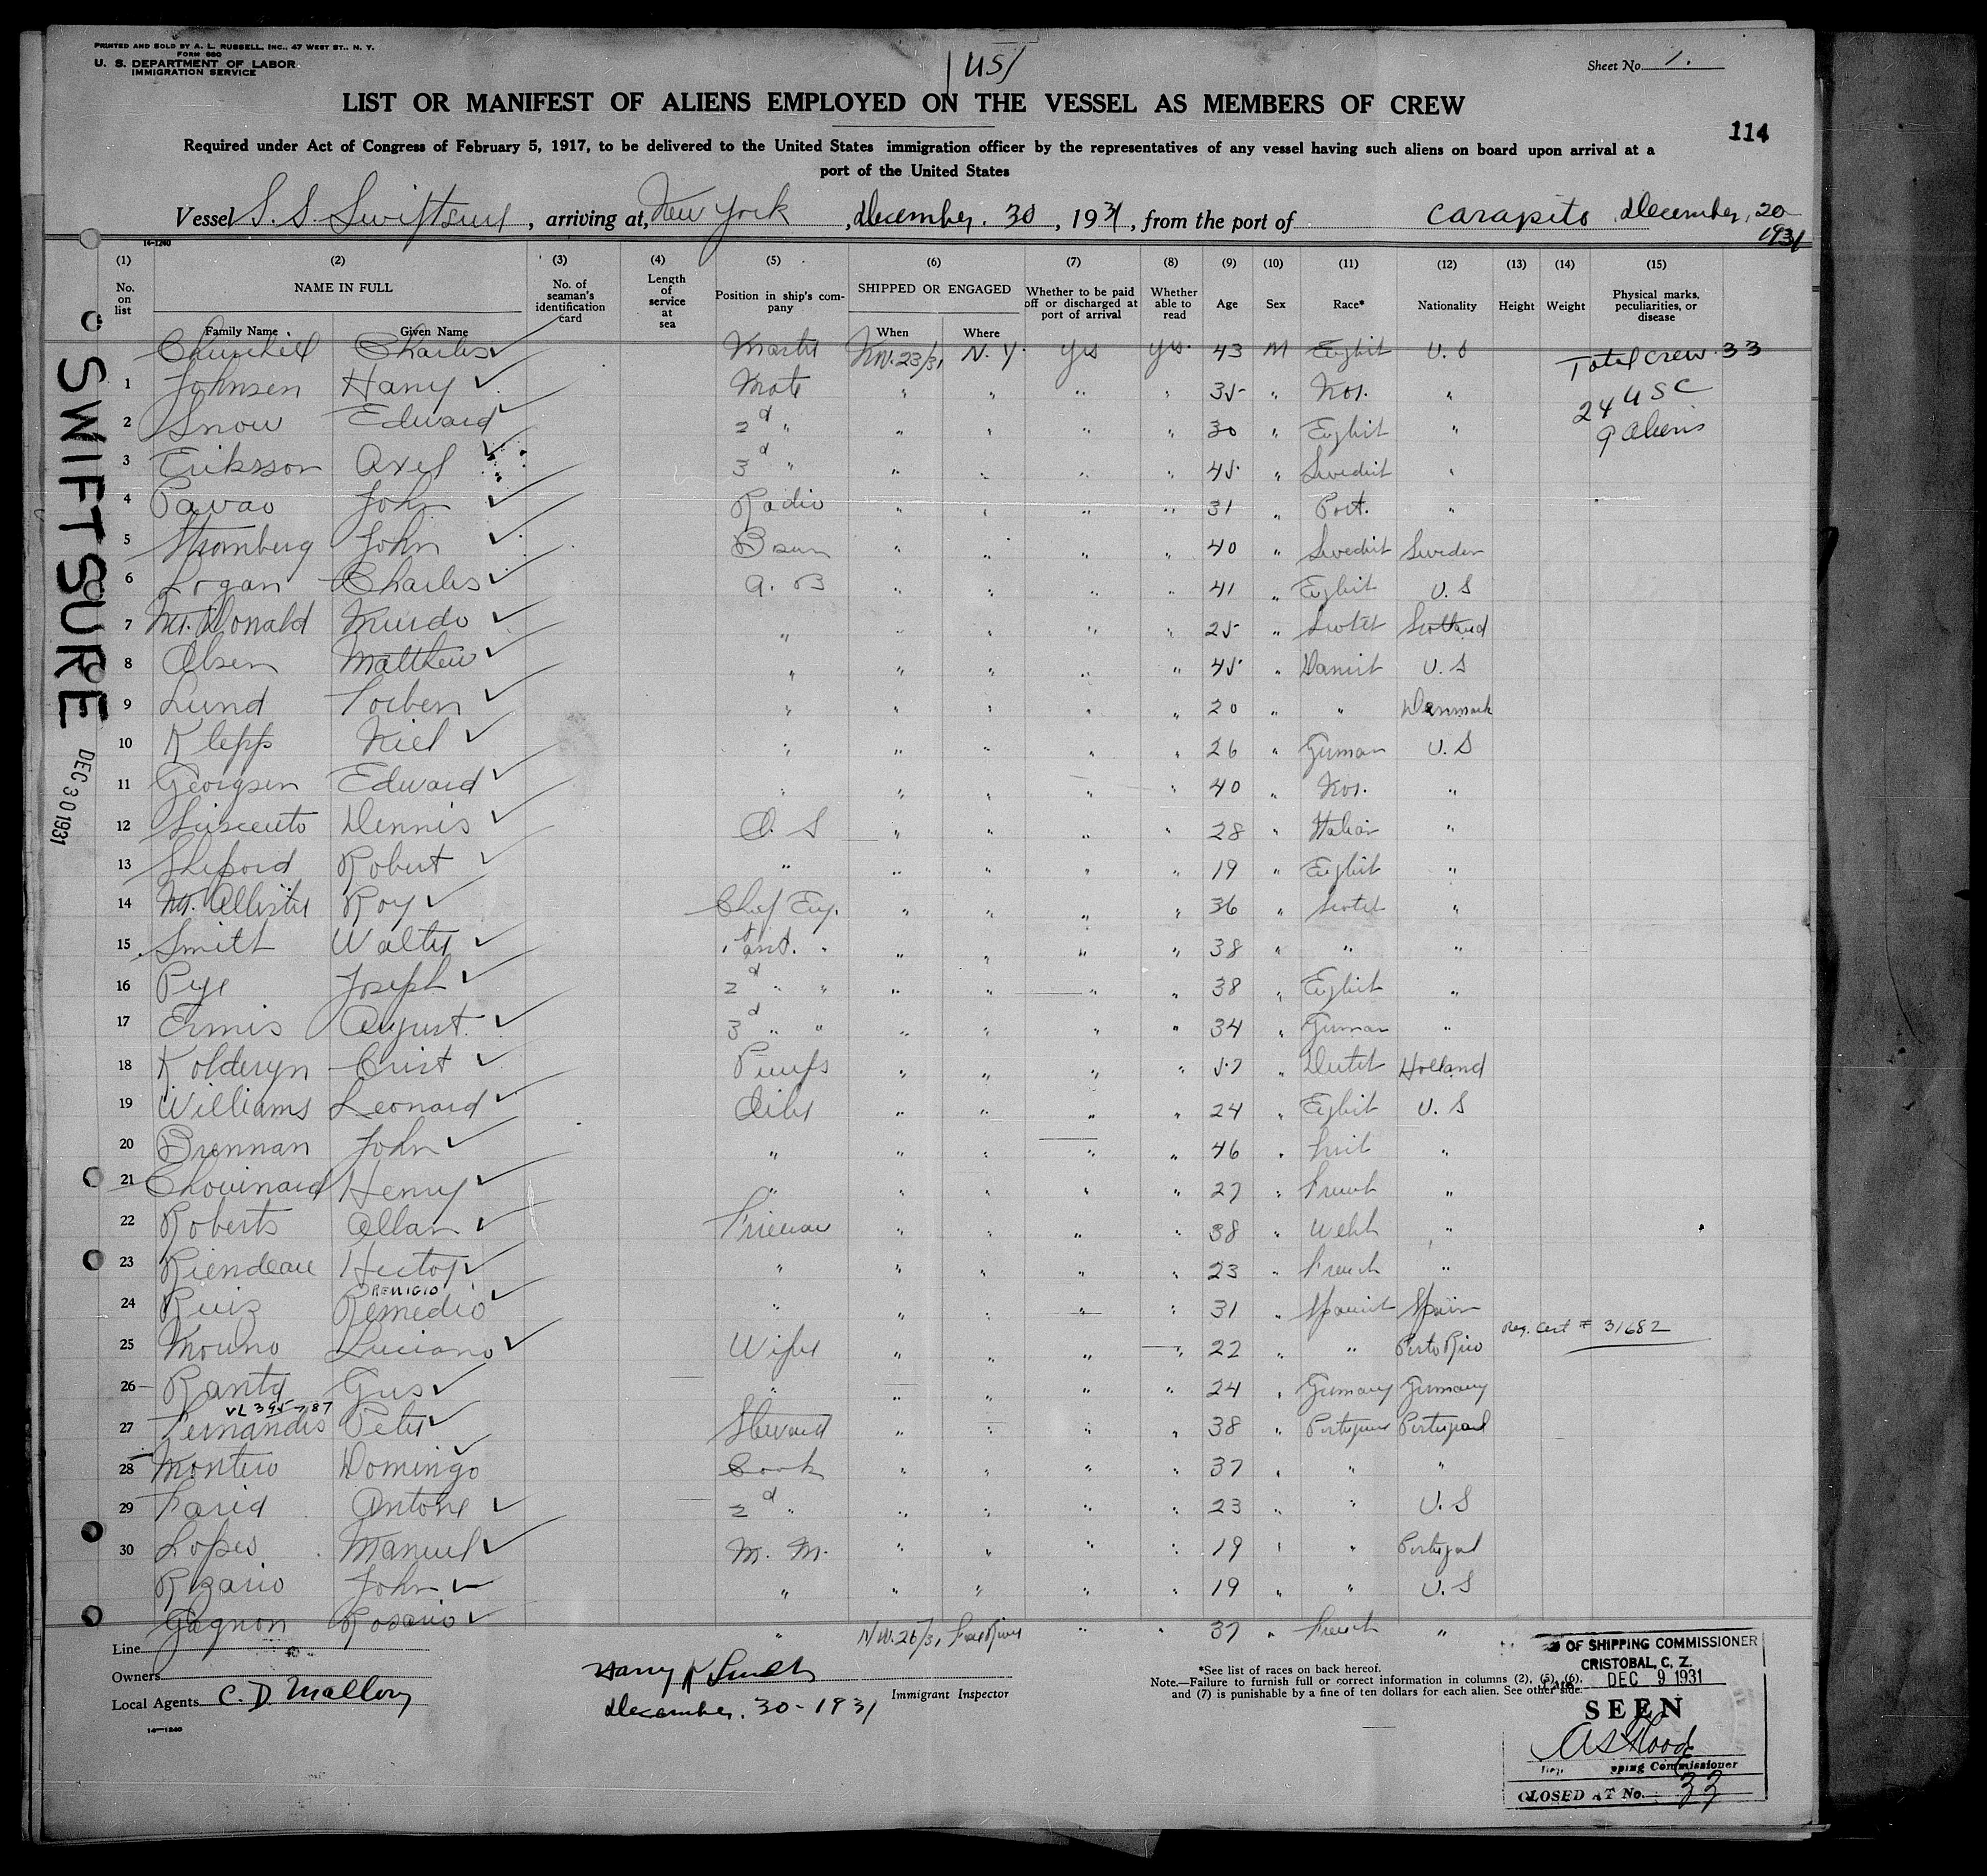 PRINTED AND SOLD BY A. L. RUSSELL, INC., 47 WEST ST., N. Y.
FORM 680
U. S. DEPARTMENT OF LABOR
IMMIGRATION SERVICE
US
Sheet No. 1.
LIST OR MANIFEST OF ALIENS EMPLOYED ON THE VESSEL AS MEMBERS OF CREW
114
Required under Act of Congress of February 5, 1917, to be delivered to the United States immigration officer by the representatives of any vessel having such aliens on board upon arrival at a
port of the United States
Vessel S. S. Swiftsure, arriving at, New York, December. 30, 1931, from the port of Carapito December, 20
1931
14-1240
(1) (2) (3) (4) (5) (6) (7) (8) (9) (10) (11) (12) (13) (14) (15)
No. on list NAME IN FULL No. of seaman's identification card Length of service at sea Position in ship's company SHIPPED OR ENGAGED Whether to be paid off or discharged at port of arrival Whether able to read Age Sex Race* Nationality Height Weight Physical marks, peculiarities, or disease
Family Name Given Name When Where
Churchill Charles Master Nov. 23/31 N. Y. Yes Yes 43 M English U. S Total crew 33
1 Johnsen Harry Mate " " " " 35 " Nor. " 24 USC
2 Snow Edward 2d " " " " " 30 " English " 9 aliens
3 Eriksson Axel 3d " " " " " 45 " Swedish "
4 Pavao John Radio " " " " 31 " Port. "
5 Stromberg John Bsun " " " " 40 " Swedish Sweden
6 Logan Charles A. B " " " " 41 " English U. S
7 Mc.Donald Murdo " " " " " 25 " Scotch Scotland
8 Olsen Matthew " " " " " 45 " Danish U. S
9 Lund Torben " " " " " 20 " " Denmark
10 Klepp Niel " " " " " 26 " German U. S
11 Georgsen Edward " " " " " 40 " Nor. "
12 Dennis O. S " " " " 28 " Italian "
13 Sheford Robert " " " " " 19 " English "
14 Mc.Allister Roy Chief Eng. " " " " 36 " Scotch "
15 Smith Walter 1st asst. " " " " " 38 " " "
16 Pye Joseph 2d " " " " " " 38 " English "
17 Ermis August 3d " " " " " " 34 " German "
18 Kolderyn Crist Pumps " " " " 57 " Dutch Holland
19 Williams Leonard Oiler " " " " 24 " English U. S
20 Brennan John " " " " " 46 " Irish "
21 Chouinard Henry " " " " " 27 " French "
22 Roberts Allan Fireman " " " " 38 " Welsh "
23 Riendeau Hector " " " " " 23 " French "
REMIGIO
24 Ruiz Remedio " " " " " 31 " Spanish Spain
Reg. Cert # 31682
25 Luciano Wiper " " " " 22 " " Porto Rico
26 Ranta Gus " " " " " 24 " Germany Germany
VL 395787
27 Fernandes Peter Steward " " " " 38 " Portuguese Portugal
28 Monteiro Domingo Cook " " " " 37 " " "
29 Faria Antone 2d " " " " " 23 " " U. S
30 Lopes Manuel M. M. " " " " 19 " " Portugal
Rozario John " " " " " 19 " " U. S
Gagnon Rosario " Nov. 26/31 Fall River " " 37 " French "
SWIFTSURE
DEC 30 1931
Line
Owners
Local Agents C. D. Mallory
14-1240
Harry K Smith
December. 30-1931
Immigrant Inspector
*See list of races on back hereof.
Note.—Failure to furnish full or correct information in columns (2), (5), (6),
and (7) is punishable by a fine of ten dollars for each alien. See other side.
OF SHIPPING COMMISSIONER
CRISTOBAL, C. Z.
DEC 9 1931
SEEN
pping Commissioner
CLOSED AT No. 33